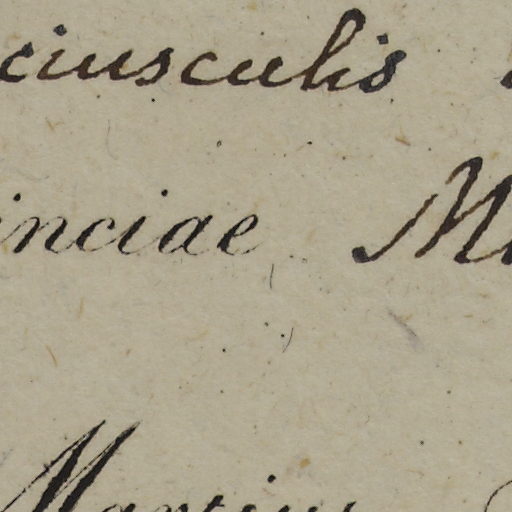 ciusculis
inciae M
Martius